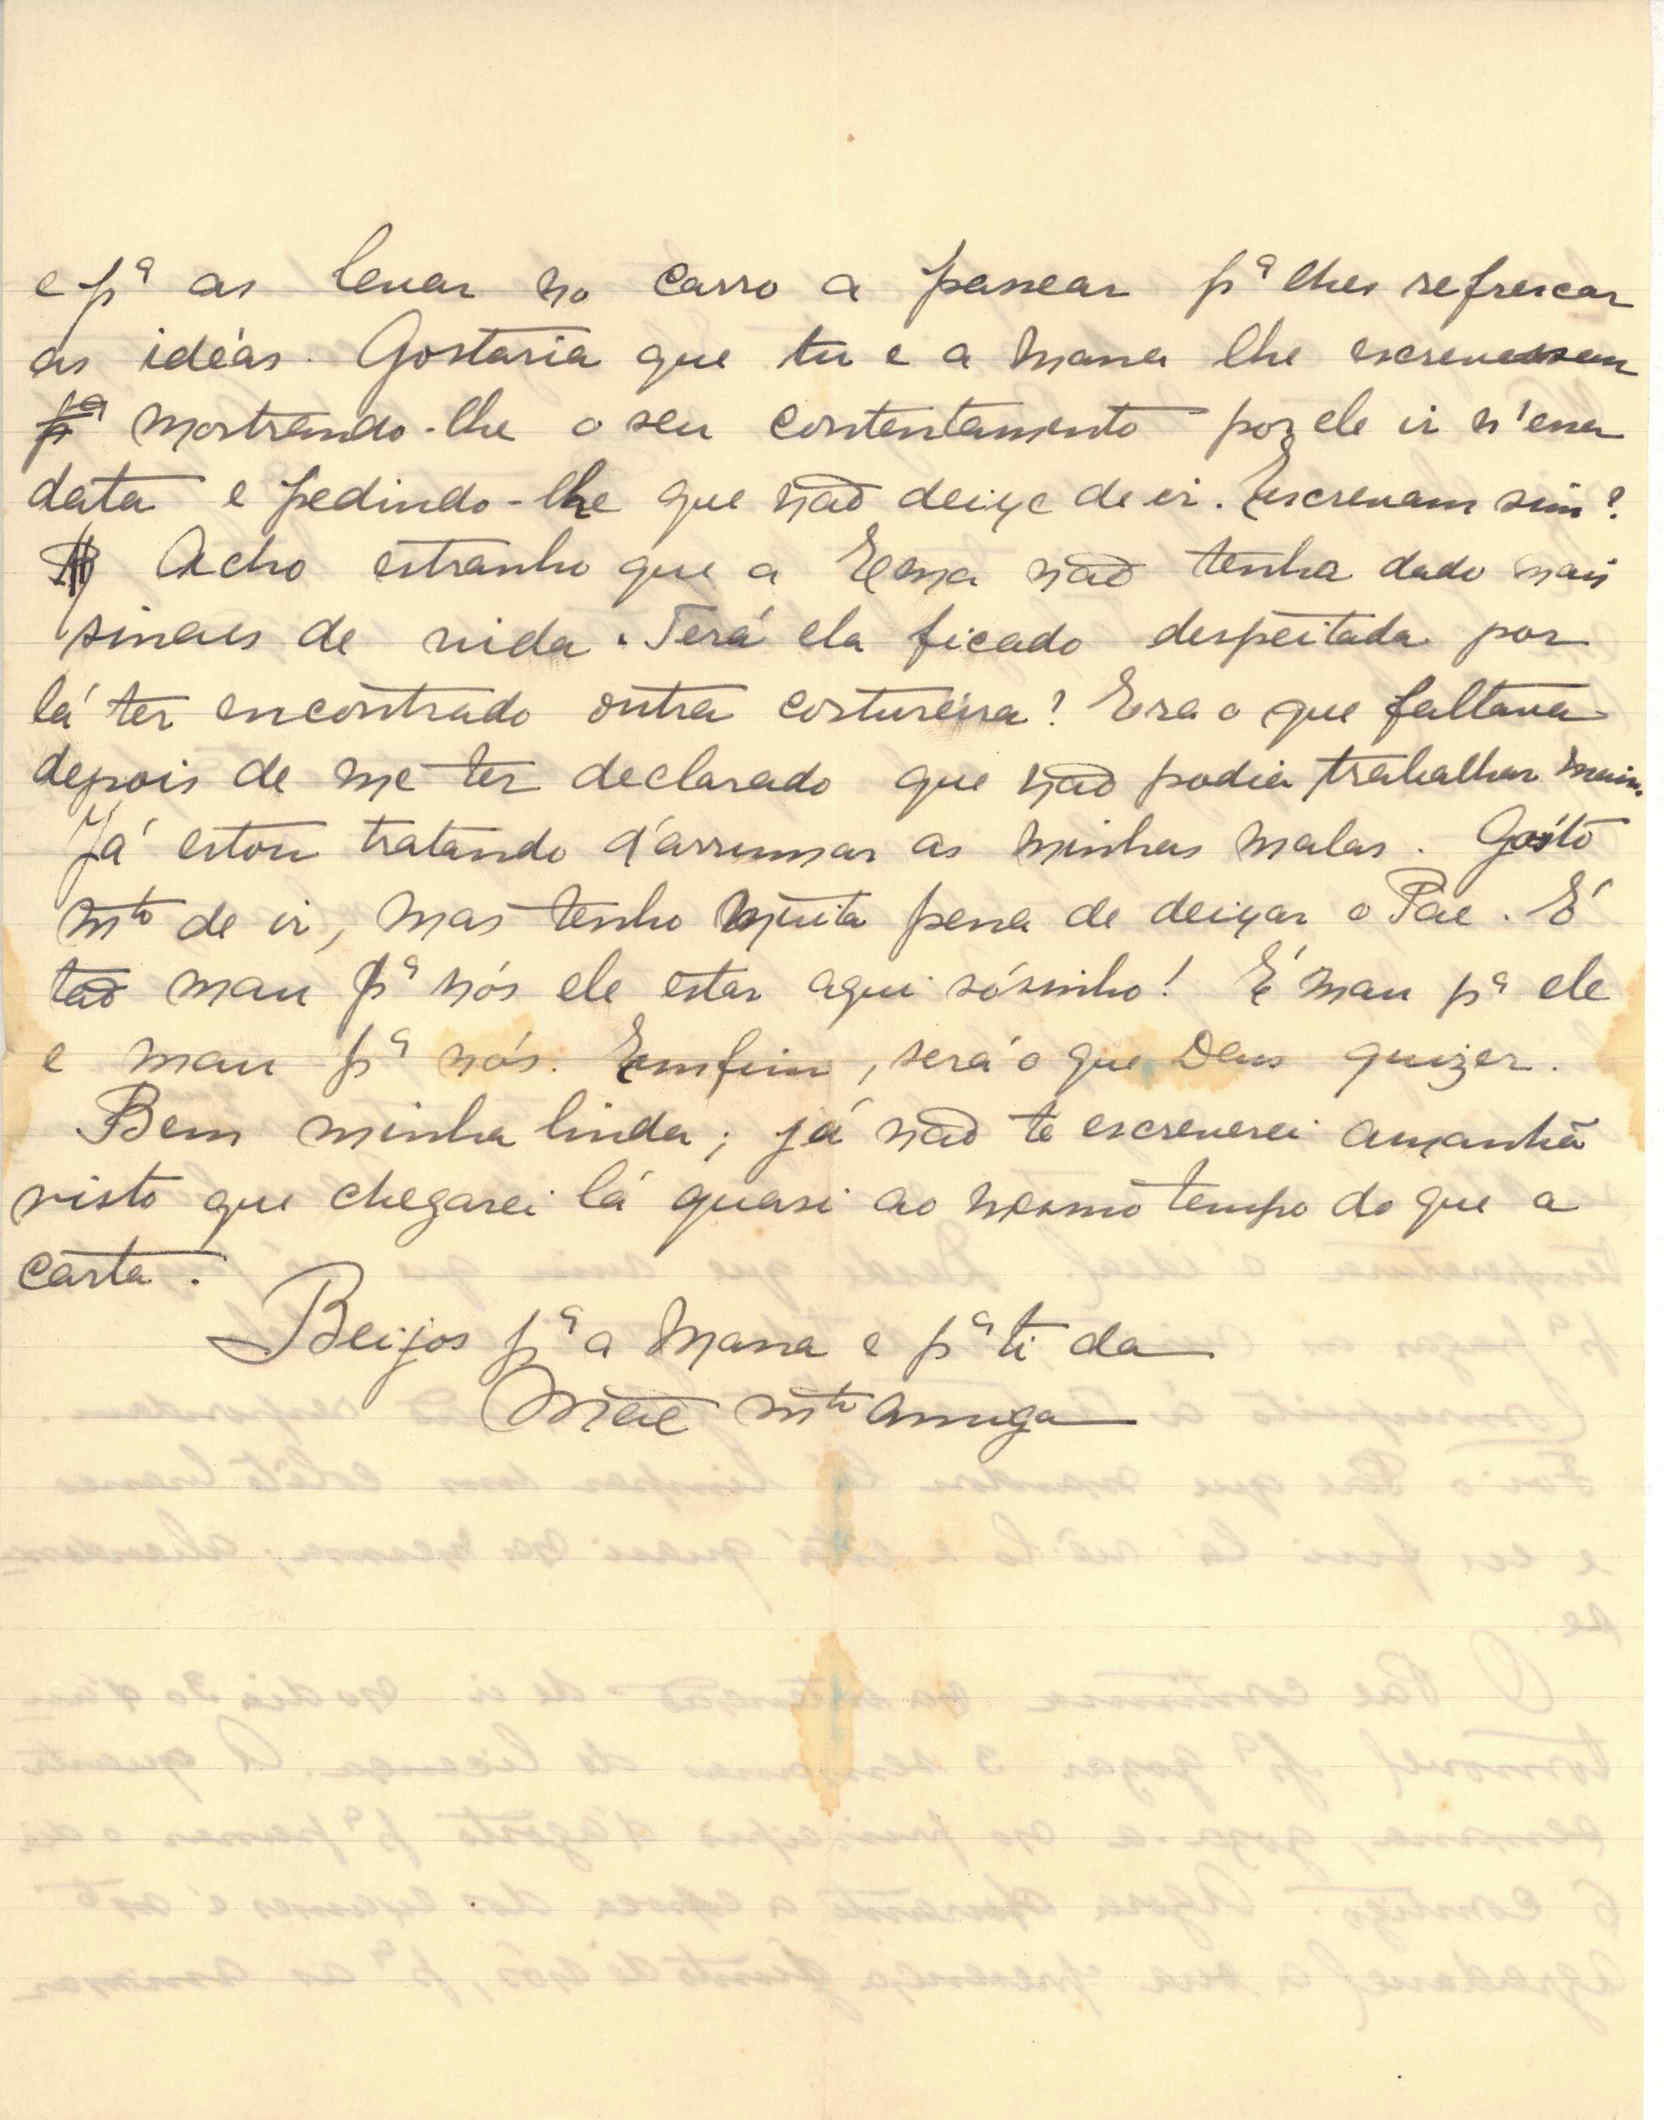 e pª as levar no carro a passear pª lhes refrescar
as idéas. Gostaria que tu e a Mana lhe escrevessem
pª mostrando-lhe o seu contentamento por ele ir n'essa
data e pedindo-lhe que não deixe de ir. Escrevam sim?
Acho estranho que a Ema não tenha dado mais
sinaes de vida. Terá ela ficado despeitada por
lá ter encontrado outra costureira? Era o que faltava
depois de me ter declarado que não podia trabalhar mais.
Já estou tratando d'arrumar as minhas malas. Gósto
mto de ir, mas tenho muita pena de deixar o Pae. É
tão mau pª nós ele estar aqui sósinho! É mau pª ele
e mau pª nós. Emfim, será o que Deus quizer.
Bem minha linda; já não te escreverei amanhã
visto que chegarei lá quasi ao mesmo tempo do que a
carta.
Beijos pª a Mana e pª ti da
Mãe mto amiga